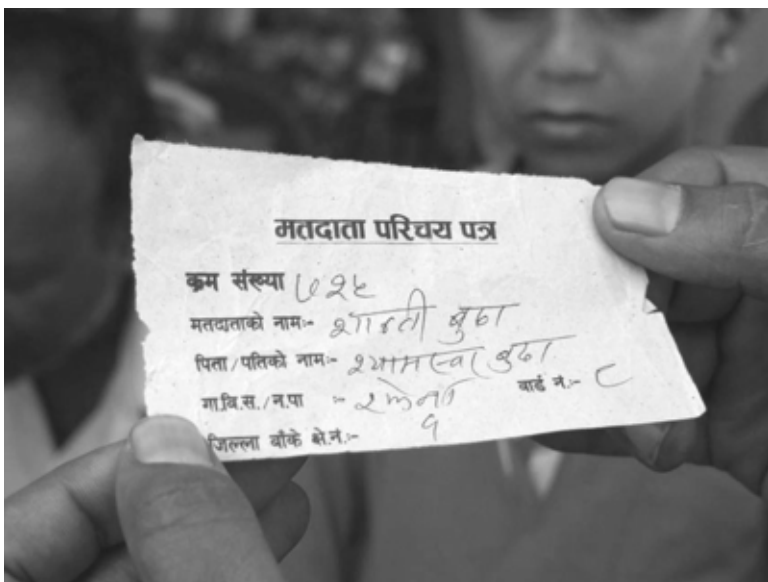 मतदाता परिचय पत्र
क्रम संख्या ७२५
मतदाताको नामः- शान्ती बुढा
पिता/पतिको नामः- बुढा
गा.वि.स./न.पा :- वार्ड नं.:- ८
जिल्ला बाँके क्षे.नं.:- १